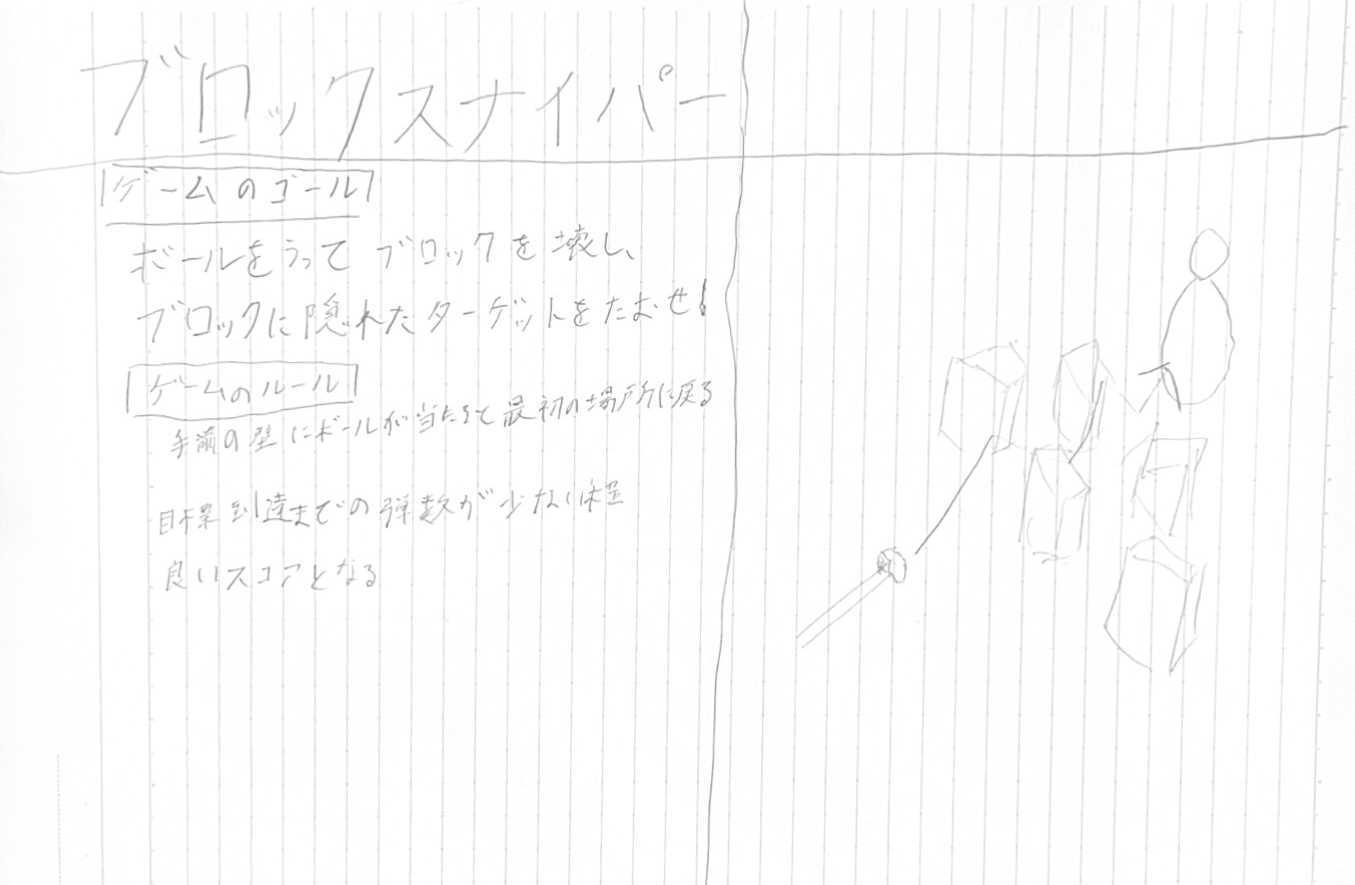 ブロックスナイパー
ゲームのゴール
ボールをうって ブロックを壊し、
ブロックに隠れたターゲットをたおせ!
ゲームのルール
手前の壁にボールが当たると最初の場所に戻る
目標到達までの弾数が少ない程
良いスコアとなる